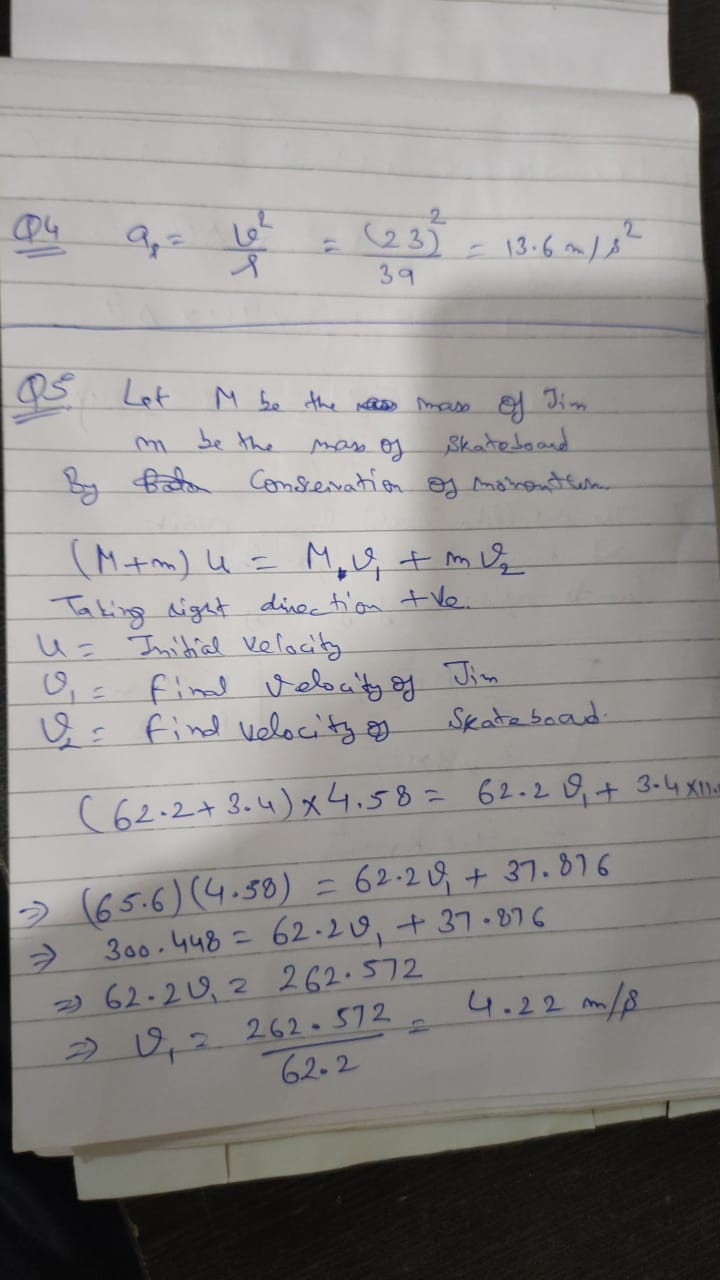 Q4 a_r = v²/r = (23)²/39 = 13.6 m/s²
Q5 Let M be the mass of Jim
m be the mass of skateboard
By Conservation of momentum
(M+m) u = M v₁ + m v₂
Taking right direction +ve.
u = Initial velocity
v₁ = final velocity of Jim
v₂ = final velocity of Skateboad.
(62.2 + 3.4) × 4.58 = 62.2 v₁ + 3.4 × 11.
⇒ (65.6)(4.58) = 62.2 v₁ + 37.876
⇒ 300.448 = 62.2 v₁ + 37.876
⇒ 62.2 v₁ = 262.572
⇒ v₁ = 262.572/62.2 = 4.22 m/s